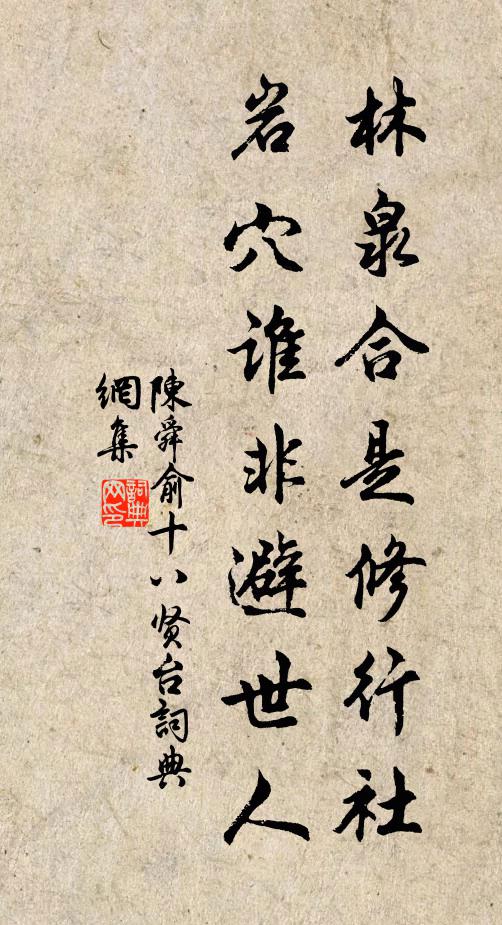 林泉合是修行社
岩穴谁非避世人
陳舜俞十八贤台詞典
網集
詞典
网印